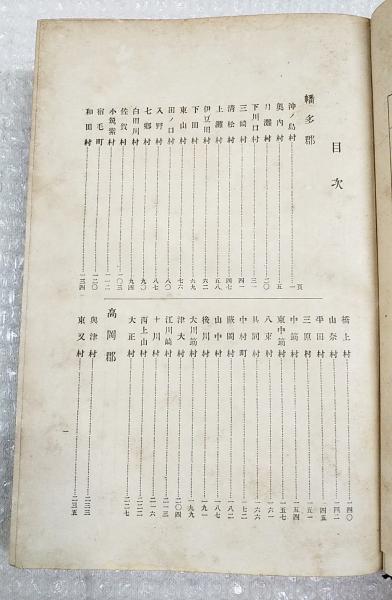 目次
幡多郡
沖ノ島村 一頁
奥内村 五
月灘村 二〇
下川口村 三一
三崎村
清松村 四七
上灘村 五八
伊豆田村 六二
下田村 六九
東山村 七六
田ノ口村 八〇
入野村
七郷村 九〇
白田川村 九四
佐賀村 一〇三
小筑紫村 一一二
宿毛町 一二〇
和田村 一三四
橋上村 一四〇
山奈村 一四二
平田村 一四五
三原村 一五一
中筋村 一五四
東中筋村 一五七
八束村 一六一
具同村 一六六
中村町 一七二
蕨岡村 一八二
山中村 一八七
後川村 一九一
大川筋村 一九九
津大村 二〇四
江川崎村 二一三
十川村 二一六
西上山村 二二二
大正村 二二七
高岡郡
興津村 二三三
東又村 二三五
一